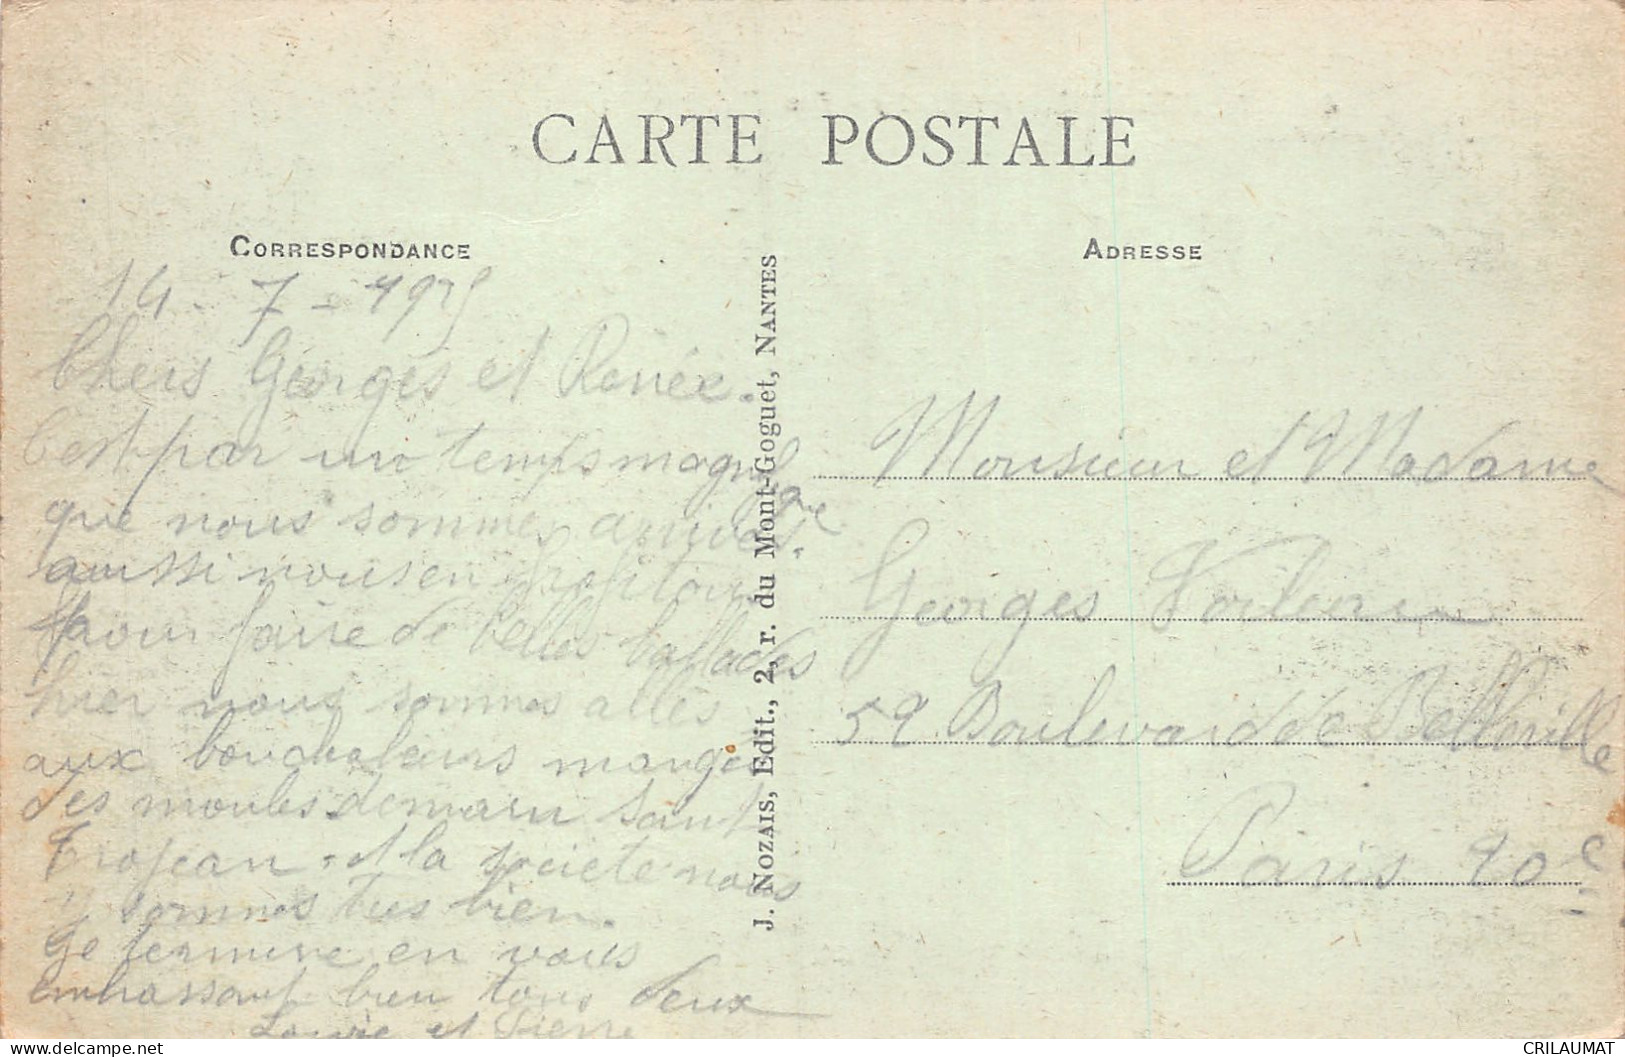 CARTE POSTALE
CORRESPONDANCE
14 - 7 - 1925
Chers Georges et Renée.
C'est par un temps magnifique
que nous sommes arrivés.
aussi nous en profitons
pour faire de belles ballades
hier nous sommes allés
aux boucholeurs mangés
des moules demain Saint
Trojean. et la societe nous
y sommes tres bien.
Je termine en vous
embrassant bien tous deux
et Pierre
J. NOZAIS, Edit., 2, r. du Mont-Goguet, NANTES
ADRESSE
Monsieur et Madame
Georges
59 Boulevard de Belleville
Paris 20e
CRILAUMAT